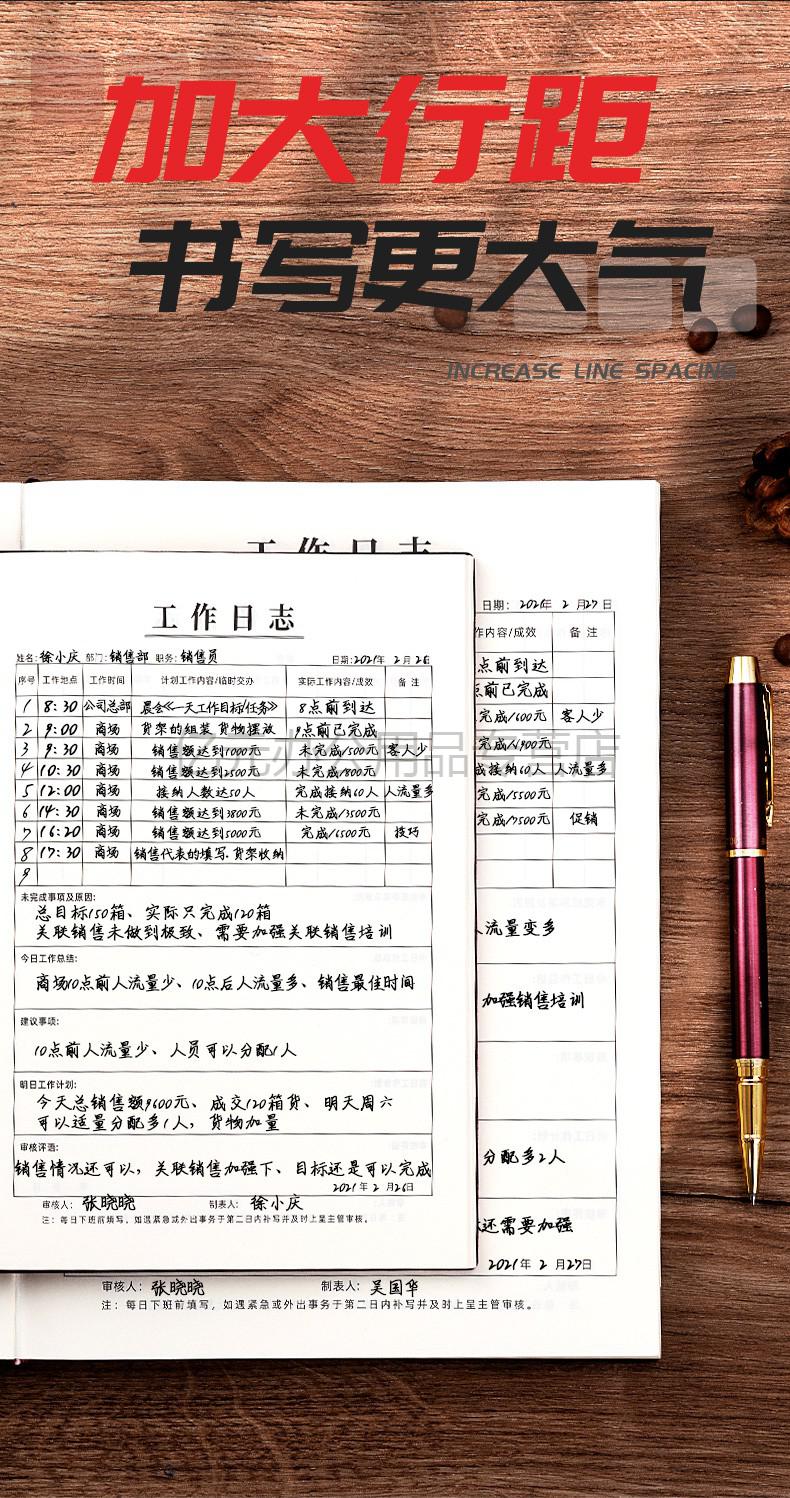 加大行距
书写更大气
INCREASE LINE SPACING
工作日志
姓名:徐小庆 部门:销售部 职务:销售员 日期:2021年 2月26
序号 工作地点 工作时间 计划工作内容/临时交办 实际工作内容/成效 备注
1 8:30 公司总部 晨会《一天工作目标/任务》 8点前到达
2 9:00 商场 货架的组装 货物摆放 9点前已完成
3 9:30 商场 销售额达到1000元 未完成/500元 客人少
4 10:30 商场 销售额达到2500元 未完成/800元
5 12:00 商场 接纳人数达50人 完成接纳60人 人流量多
6 14:30 商场 销售额达到3800元 未完成/3500元
7 16:20 商场 销售额达到5000元 完成/6500元 技巧
8 17:30 商场 销售代表的填写.货架收纳
9
未完成事项及原因:
总目标150箱、实际只完成120箱
关联销售未做到极致、需要加强关联销售培训
今日工作总结:
商场10点前人流量少、10点后人流量多、销售最佳时间
建议事项:
10点前人流量少、人员可以分配1人
明日工作计划:
今天总销售额9600元、成交120箱货、明天周六
可以适量分配多1人,货物加量
审核评语:
销售情况还可以,关联销售加强下、目标还是可以完成
2021年2月26日
审核人:张晓晓 制表人:徐小庆
注:每日下班前填写,如遇紧急或外出事务于第二日内补写并及时上呈主管审核。
工作日志
日期:2021年 2月27日
作内容/成效 备注
点前到达
前已完成
完成/600元 客人少
完成/1900元
接纳60人 人流量多
完成/5500元
完成/7500元 促销
人流量变多
加强销售培训
分配多2人
还需要加强
2021年2月27日
审核人:张晓晓 制表人:吴国华
注:每日下班前填写,如遇紧急或外出事务于第二日内补写并及时上呈主管审核。
办公用品专营店